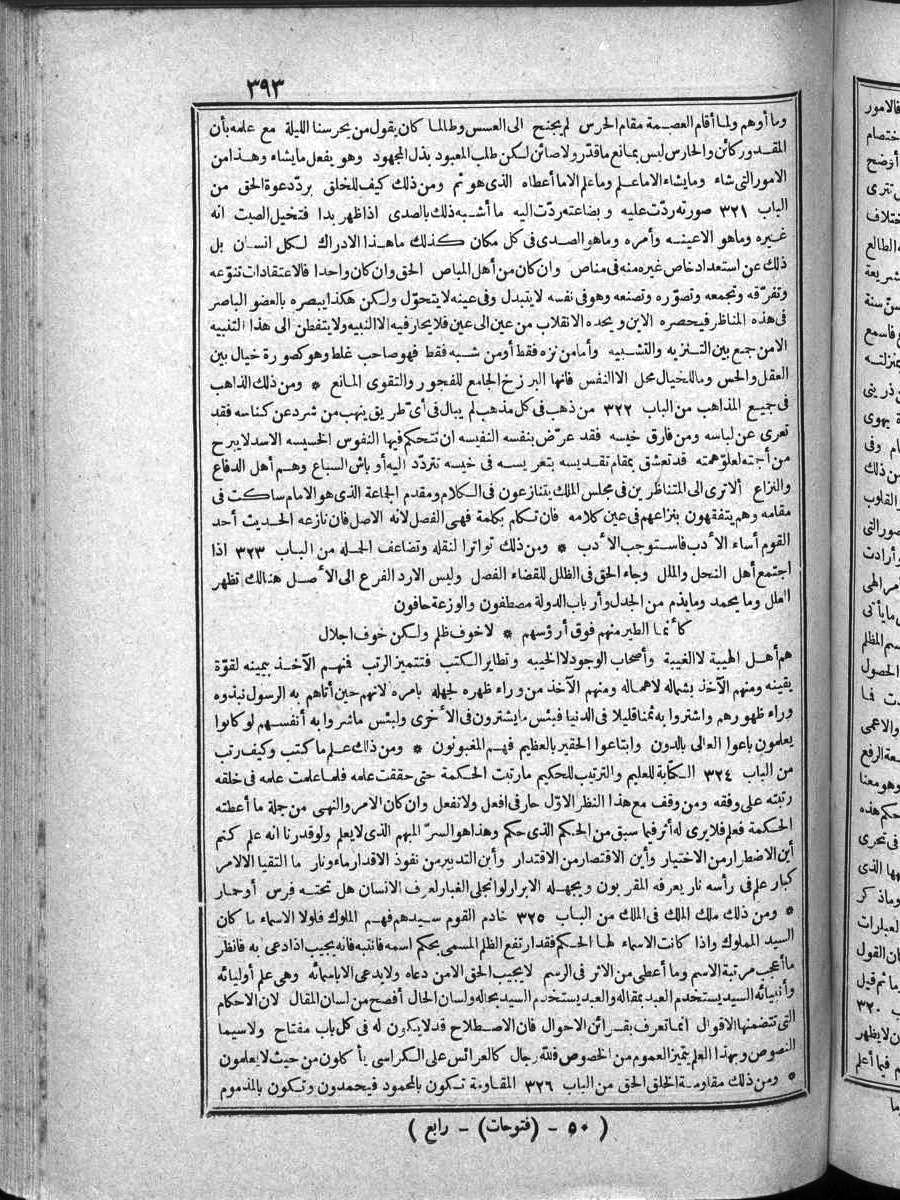 ٣٩٣
وما أوهم ولما أقام العصمة مقام الحرس لم يجنح الى العسس وطالما كان يقول من يحرسنا الليلة مع علمه بأن
المقدور كائن والحارس ليس بمانع ما قدر ولا صائن لكن طلب المعبود بذل المجهود وهو يفعل ما يشاء وهذا من
الامور التى شاء وما يشاء الا ما علم وما علم الا ما أعطاه الذى هو ثم ومن ذلك كيف للخلق بردّ دعوة الحق من
الباب ٣٢١ صورته ردّت عليه وبضاعته ردّت اليه ما أشبه ذلك بالصدى اذا ظهر بدا فتخيل الصيت انه
غيره وما هو الا عينه وأمره وما هو الصدى فى كل مكان كذلك ما هذا الادراك لكل انسان بل
ذلك عن استعداد خاص غيره منه فى مناص وان كان من أهل المباص الحق وان كان واحدا فالاعتقادات تنوّعه
وتفرّقه وتجمعه وتصوّره وتصنعه وهو فى نفسه لا يتبدل وفى عينه لا يتحوّل ولكن هكذا يبصره بالعضو الباصر
فى هذه المناظر فيحصره الاين ويحده الانقلاب من عين الى عين فلا يحار فيه الا النبيه ولا يتفطن الى هذا التنبيه
الا من جمع بين التنزيه والتشبيه وأما من نزه فقط أو من شبه فقط فهو صاحب غلط وهو كصورة خيال بين
العقل والحس وما للخيال محل الا النفس فانها البرزخ الجامع للفجور والتقوى المانع * ومن ذلك الذاهب
فى جميع المذاهب من الباب ٣٢٢ من ذهب فى كل مذهب لم يبال فى أىّ طريق ينهب من شرد عن كناسه فقد
تعرى عن لباسه ومن فارق خيسه فقد عرّض بنفسه النفيسه ان تتحكم فيها النفوس الخسيسه الاسد لا يبرح
من أجته لعلوّ همته قد تعشق بمقام تقديسه بتعريسه فى خيسه تتردّد اليه أوباش السباع وهم أهل الدفاع
والنزاع ألا ترى الى المتناظرين فى مجلس الملك يتنازعون فى الكلام ومقدم الجماعة الذى هو الامام ساكت فى
مقامه وهم يتفقهون بنزاعهم فى عين كلامه فان تكلم بكلمة فهى الفصل لانه الاصل فان نازعه الحديث أحد
القوم أساء الأدب فاستوجب الأدب * ومن ذلك تواترا لنقله وتضاعف الجله من الباب ٣٢٣ اذا
اجتمع أهل النحل والملل وجاء الحق فى الظلل للقضاء الفصل وليس الا رد الفرع الى الأصل هنالك تظهر
العلل وما يحمد وما يذم من الجدل وأرباب الدولة مصطفون والوزعة حافون
كأنما الطير منهم فوق أرؤسهم * لا خوف ظلم ولكن خوف اجلال
هم أهل الهيبة لا الغيبة وأصحاب الوجود لا الخيبه وتطاير الكتب فتتميز الرتب فنهم الآخذ بيمينه لقوّة
يقينه ومنهم الآخذ بشماله لاهماله ومنهم الآخذ من وراء ظهره لجهله بامره لانهم حين أتاهم به الرسول نبذوه
وراء ظهورهم واشتروا به ثمنا قليلا فى الدنيا فبئس ما يشترون فى الأخرى ولبئس ما شروا به أنفسهم لو كانوا
يعلمون باعوا العالى بالدون وابتاعوا الحقير بالعظيم فهم المغبونون * ومن ذلك علم ما كتب وكيف رتب
من الباب ٣٢٤ الكتابة للعليم والترتيب للحكيم ما رتبت الحكمة حتى حققت علمه فلما علمت علمه فى خلقه
رتبته على وفقه ومن وقف مع هذا النظر الاوّل حار فى افعل ولا تفعل وان كان الامر والنهى من جملة ما أعطته
الحكمة فعلم فلا يرى له أثر فيما سبق من الحكم الذى حكم وهذا هو السرّ المبهم الذى لا يعلم ولو قدرنا انه علم كتم
أين الاضطرار من الاختيار وأين الاقتصار من الاقتدار وأين التدبير من نفوذ الاقدار ماء ونار ما التقيا الا لامر
كبار علم فى رأسه نار يعرفه المقربون ويجهله الابرار لو انجلى الغبار لعرف الانسان هل تحته فرس أو حمار
* ومن ذلك ملك الملك فى الملك من الباب ٣٢٥ خادم القوم سيدهم فهم الملوك فلولا الاسماء ما كان
السيد المملوك واذا كانت الاسماء لها الحكم فقد ارتفع الظلم المسمى بحكم اسمه فانتبه فانه يجيب اذا دعى به فانظر
ما أعجب مرتبة الاسم وما أعطى من الاثر فى الرسم لا يجيب الحق الا من دعاه ولا يدعى الا باسمائه وهى علم أوليائه
وأنبيائه السيد يستخدم العبد بمقاله والعبد يستخدم السيد بحاله ولسان الحال أفصح من لسان المقال لان الاحكام
التى تتضمنها الاقوال انما تعرف بقرائن الاحوال فان الاصطلاح قد لا يكون له فى كل باب مفتاح ولا سيما
النصوص وبهذا العلم يتميز العموم من الخصوص فلله رجال كالعرائس على الكراسى يأكلون من حيث لا يعلمون
* ومن ذلك مقاومة الخلق الحق من الباب ٣٢٦ المقاومة تكون بالمحمود فيحمدون وتكون بالمذموم
( ٥٠ - (فتوحات) - رابع )